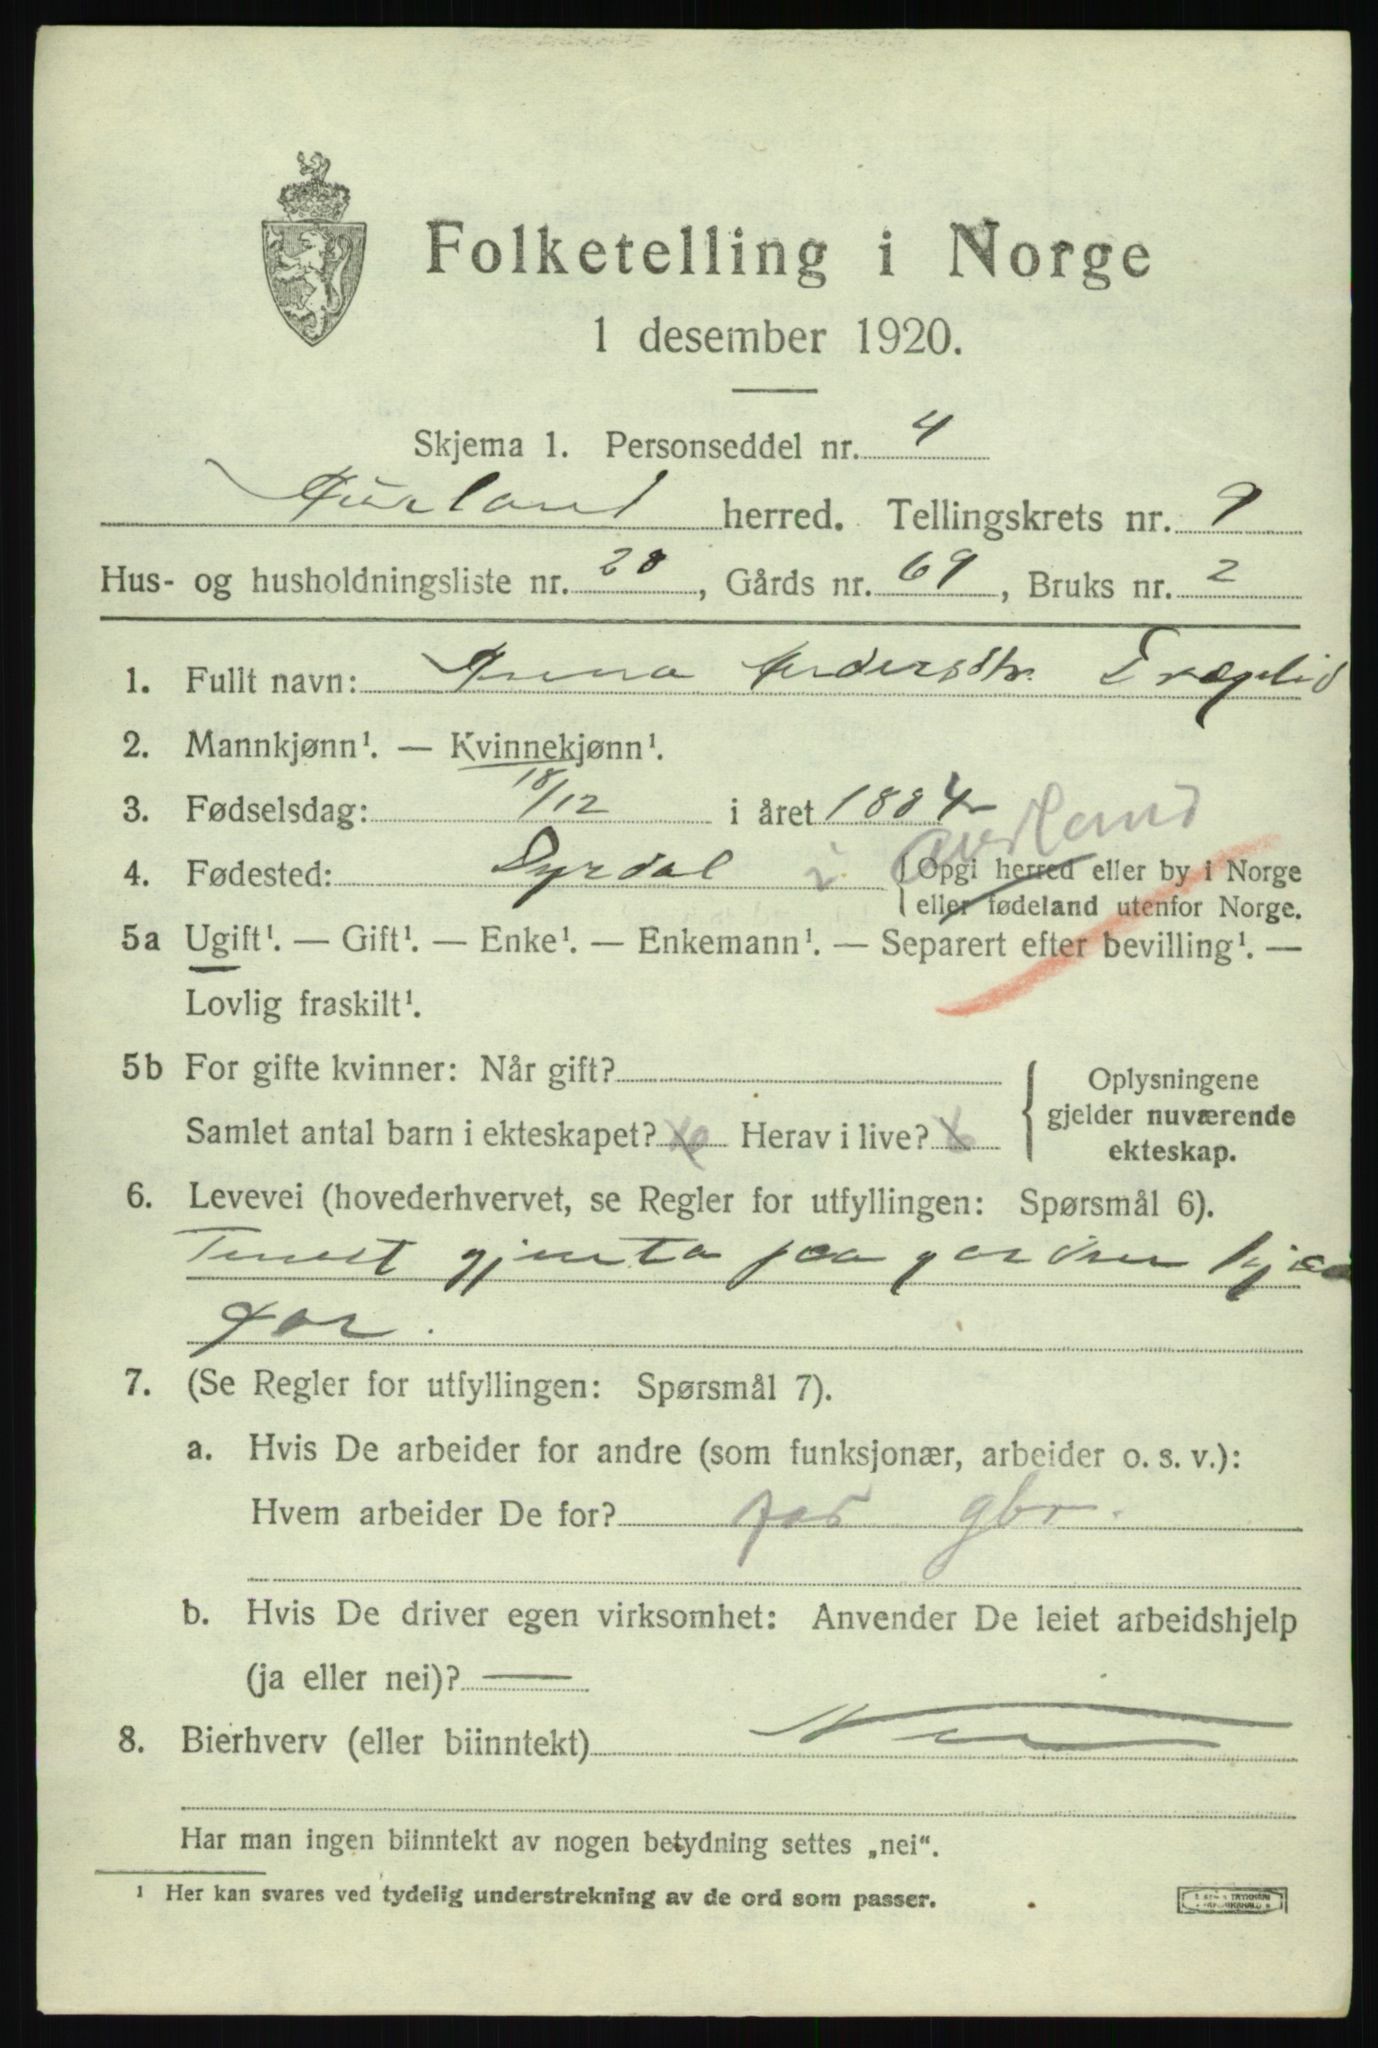 Folketelling i Norge
1 desember 1920.
Skjema 1. Personseddel nr. 4
Aurland herred. Tellingskrets nr. 9
Hus- og husholdningsliste nr. 28, Gårds nr. 69, Bruks nr. 2
1. Fullt navn: Anna Andersdtr.
2. Mannkjønn¹. — Kvinnekjønn¹.
3. Fødselsdag: 18/12 i året 1884
4. Fødested: Dyrdal i Aurland {Opgi herred eller by i Norge
eller fødeland utenfor Norge.
5a Ugift¹. — Gift¹. — Enke¹. — Enkemann¹. — Separert efter bevilling¹. —
Lovlig fraskilt¹.
5b For gifte kvinner: Når gift?
Samlet antal barn i ekteskapet? Herav i live?
{ Oplysningene
gjelder nuværende
ekteskap.
6. Levevei (hovederhvervet, se Regler for utfyllingen: Spørsmål 6).
gjenta paa garden hjaa
far.
7. (Se Regler for utfyllingen: Spørsmål 7).
a. Hvis De arbeider for andre (som funksjonær, arbeider o. s. v.):
Hvem arbeider De for? far gbr.
b. Hvis De driver egen virksomhet: Anvender De leiet arbeidshjelp
(ja eller nei)? —
8. Bierhverv (eller biinntekt)
Har man ingen biinntekt av nogen betydning settes „nei“.
¹ Her kan svares ved tydelig understrekning av de ord som passer.